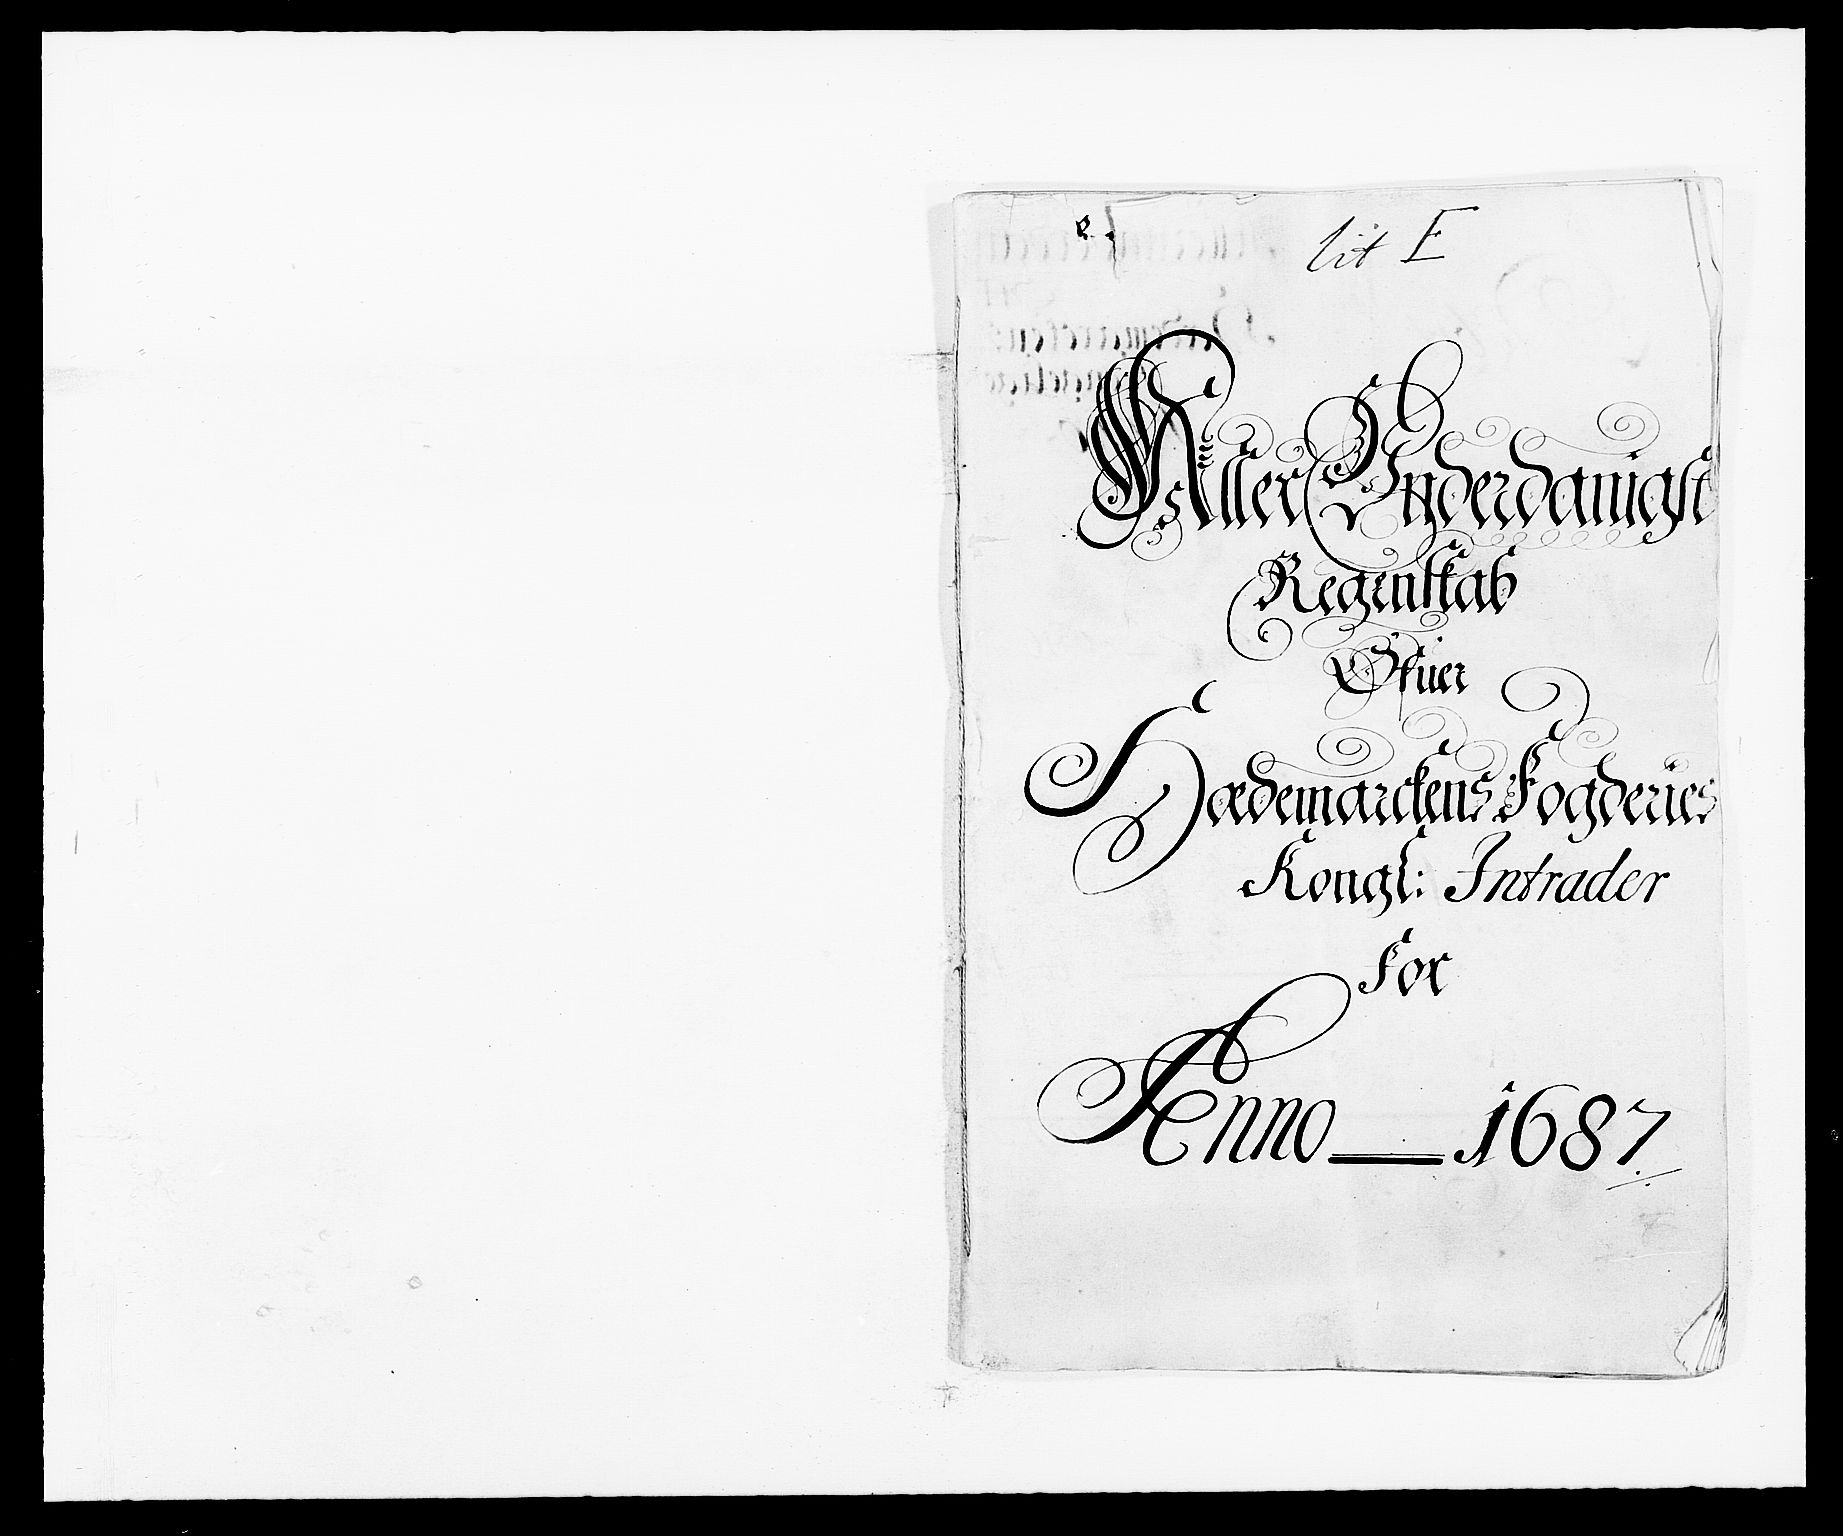 lit E
Aller Underdanigst
Regenskab
Ofuer
Hædemarckens Fogderies
Kongl: Intrader
For
Anno 1687